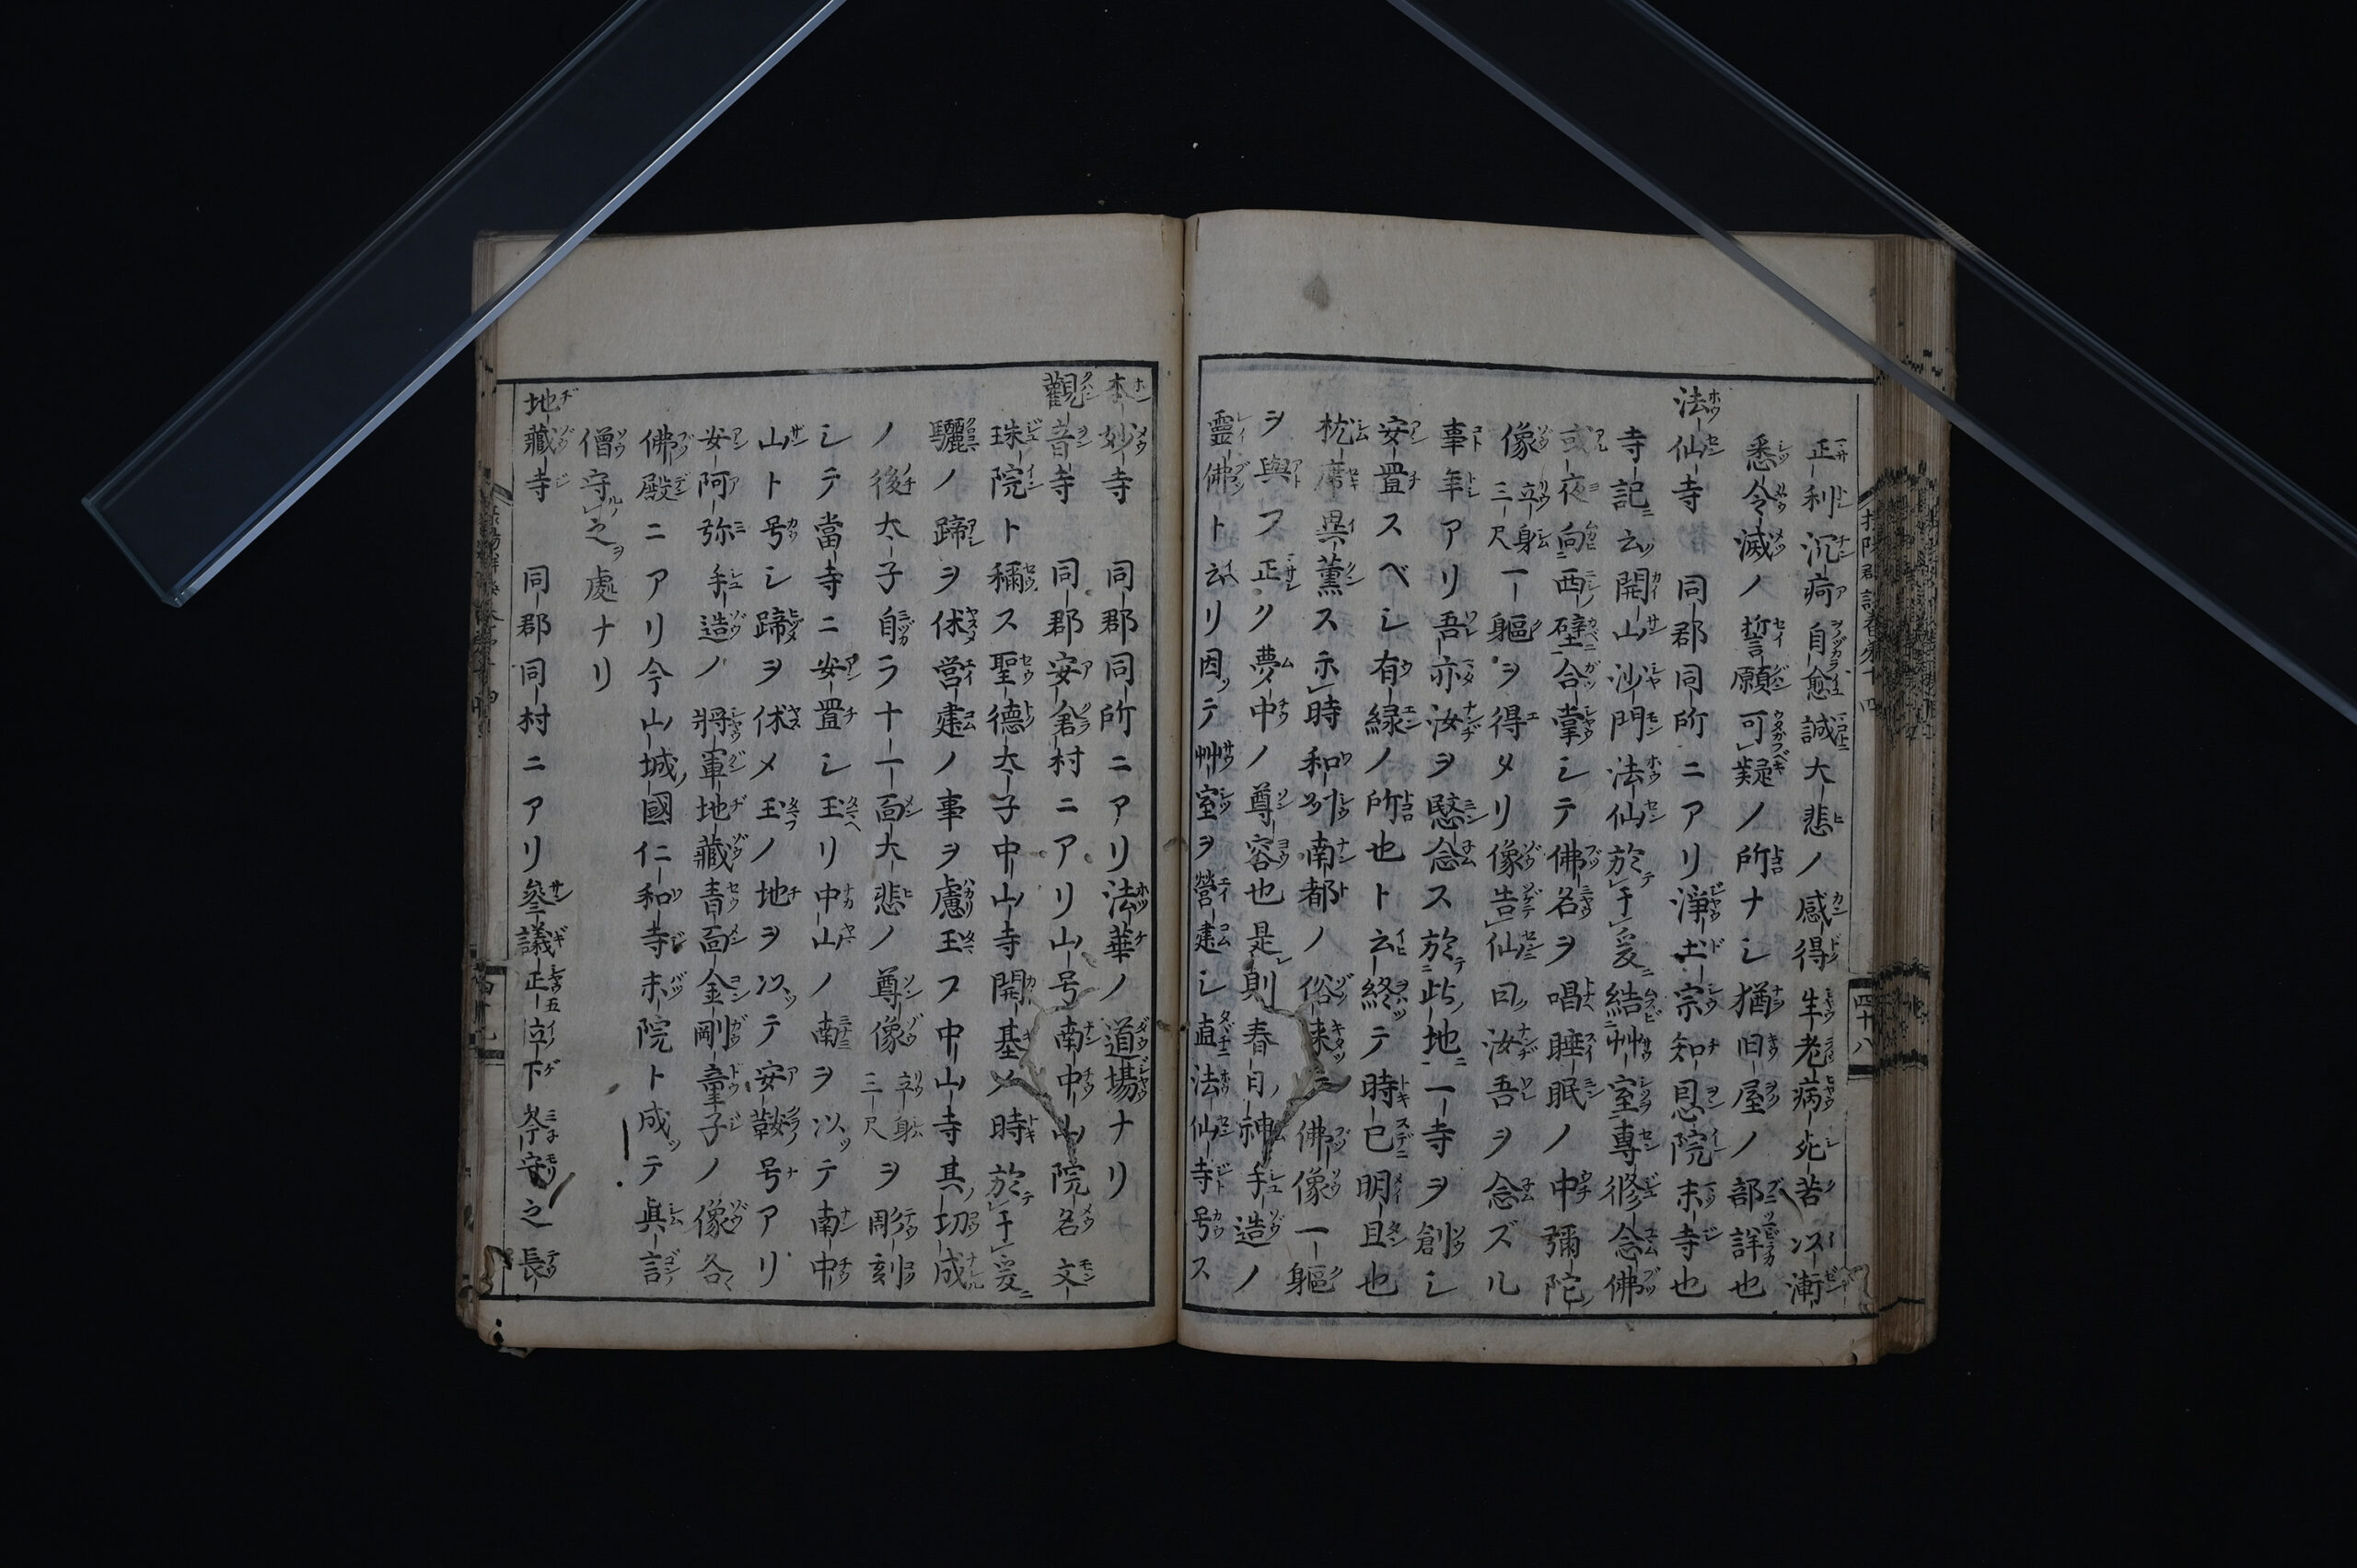 正利沉痾自愈誠大悲ノ感得生老病死苦以漸
悉令滅ノ誓願可疑ノ所ナシ猶旧屋ノ部詳也
法仙寺 同郡同所ニアリ淨土宗知恩院末寺也
寺記云開山沙門法仙於于爰結艸室專修念佛
或夜向西壁合掌シテ佛名ヲ唱睡眠ノ中彌陀
像立身三尺一軀ヲ得タリ像告仙曰汝吾ヲ念ズル
事年アリ吾亦汝ヲ愍念ス於此地一寺ヲ創シ
安置スベシ有縁ノ所也ト云終テ時已明旦也
枕席異薫ス示時和州南都ノ俗来ニ佛像一軀
ヲ與フ正ク夢中ノ尊容也是則春日神手造ノ
靈佛ト云リ因テ艸室ヲ營建シ直法仙寺号ス
本妙寺 同郡同所ニアリ法華ノ道場ナリ
觀音寺 同郡安倉村ニアリ山号南中山院名文
珠院ト稱ス聖德太子中山寺開基ノ時於于爰
驪ノ蹄ヲ休営建ノ事ヲ慮玉フ中山寺其切成
ノ後太子自ラ十一面大悲ノ尊像立身三尺ヲ彫刻
シテ當寺ニ安置シ玉リ中山ノ南ヲ以テ南中
山ト号シ蹄ヲ休メ玉ノ地ヲ以テ安鞍号アリ
安阿弥手造ノ將軍地藏青面金剛童子ノ像各
佛殿ニアリ今山城國仁和寺末院ト成テ眞言
僧守之處ナリ
地藏寺 同郡同村ニアリ參議正五位下今守之長
四十八